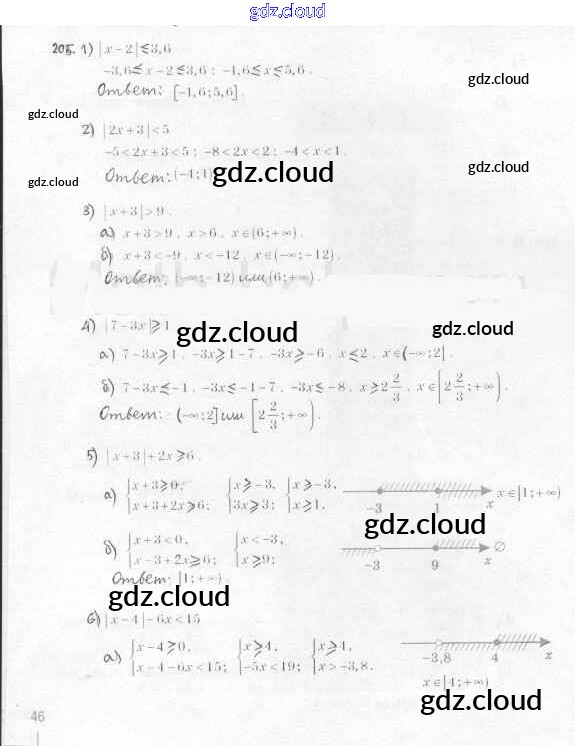 gdz.cloud
205. 1) |x−2|⩽3,6
−3,6⩽x−2⩽3,6; −1,6⩽x⩽5,6.
gdz.cloud
Ответ: [−1,6;5,6].
gdz.cloud
2) |2x+3|<5
−5<2x+3<5; −8<2x<2; −4<x<1.
gdz.cloud
Ответ: (−4;1)
gdz.cloud
gdz.cloud
3) |x+3|>9.
а) x+3>9, x>6, x∈(6;+∞).
б) x+3<−9, x<−12, x∈(−∞;−12).
Ответ: (−∞;−12) или (6;+∞).
4) |7−3x|⩾1
gdz.cloud
gdz.cloud
а) 7−3x⩾1, −3x⩾1−7, −3x⩾−6, x⩽2, x∈(−∞;2].
б) 7−3x⩽−1, −3x⩽−1−7, −3x⩽−8, x⩾2 2/3, x∈[2 2/3;+∞).
Ответ: (−∞;2] или [2 2/3;+∞).
5) |x+3|+2x⩾6.
а) {x+3⩾0, {x⩾−3, {x⩾−3,
x+3+2x⩾6; 3x⩾3; x⩾1,
−3 1 x x∈[1;+∞)
gdz.cloud
б) {x+3<0, {x<−3,
−x−3+2x⩾6; x⩾9;
−3 9 x ∅
Ответ: [1;+∞).
gdz.cloud
6) |x−4|−6x<15
а) {x−4⩾0, {x⩾4, {x⩾4,
x−4−6x<15; −5x<19; x>−3,8.
−3,8 4 x
x∈[4;+∞)
gdz.cloud
46